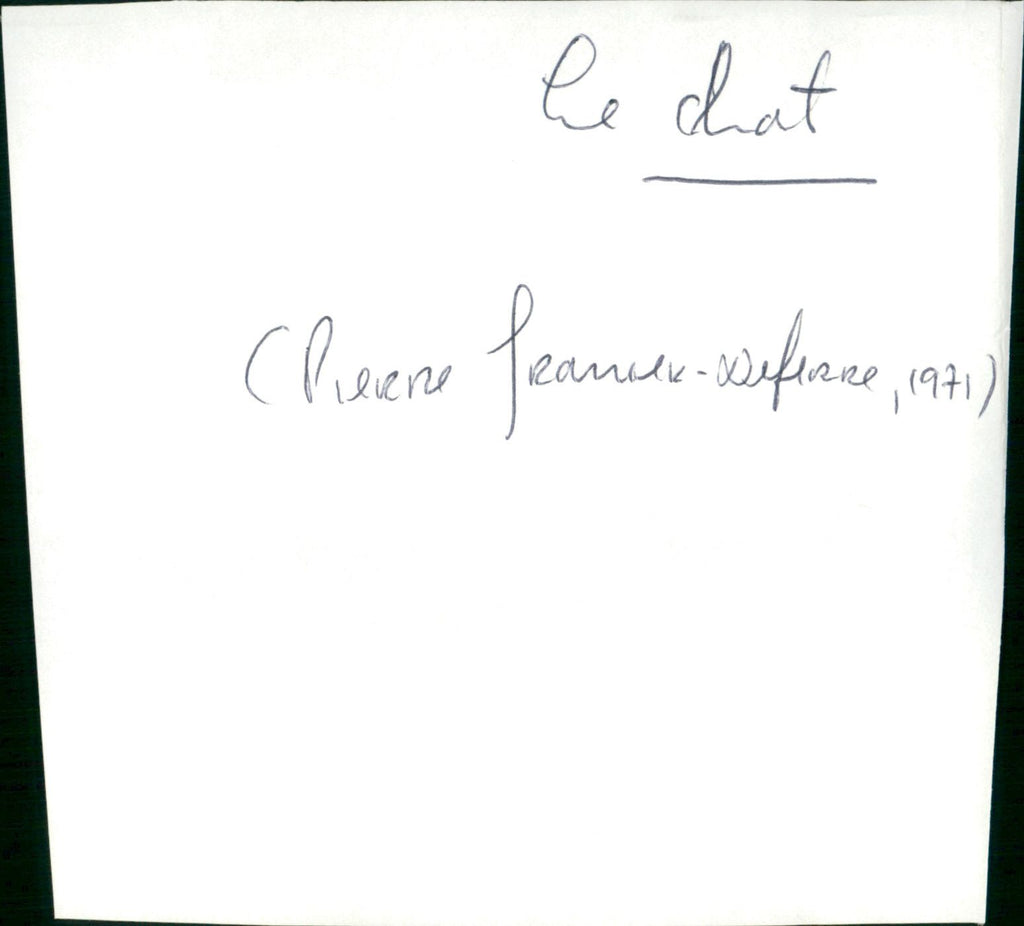 Le chat
(Pierre Granier-Deferre, 1971)